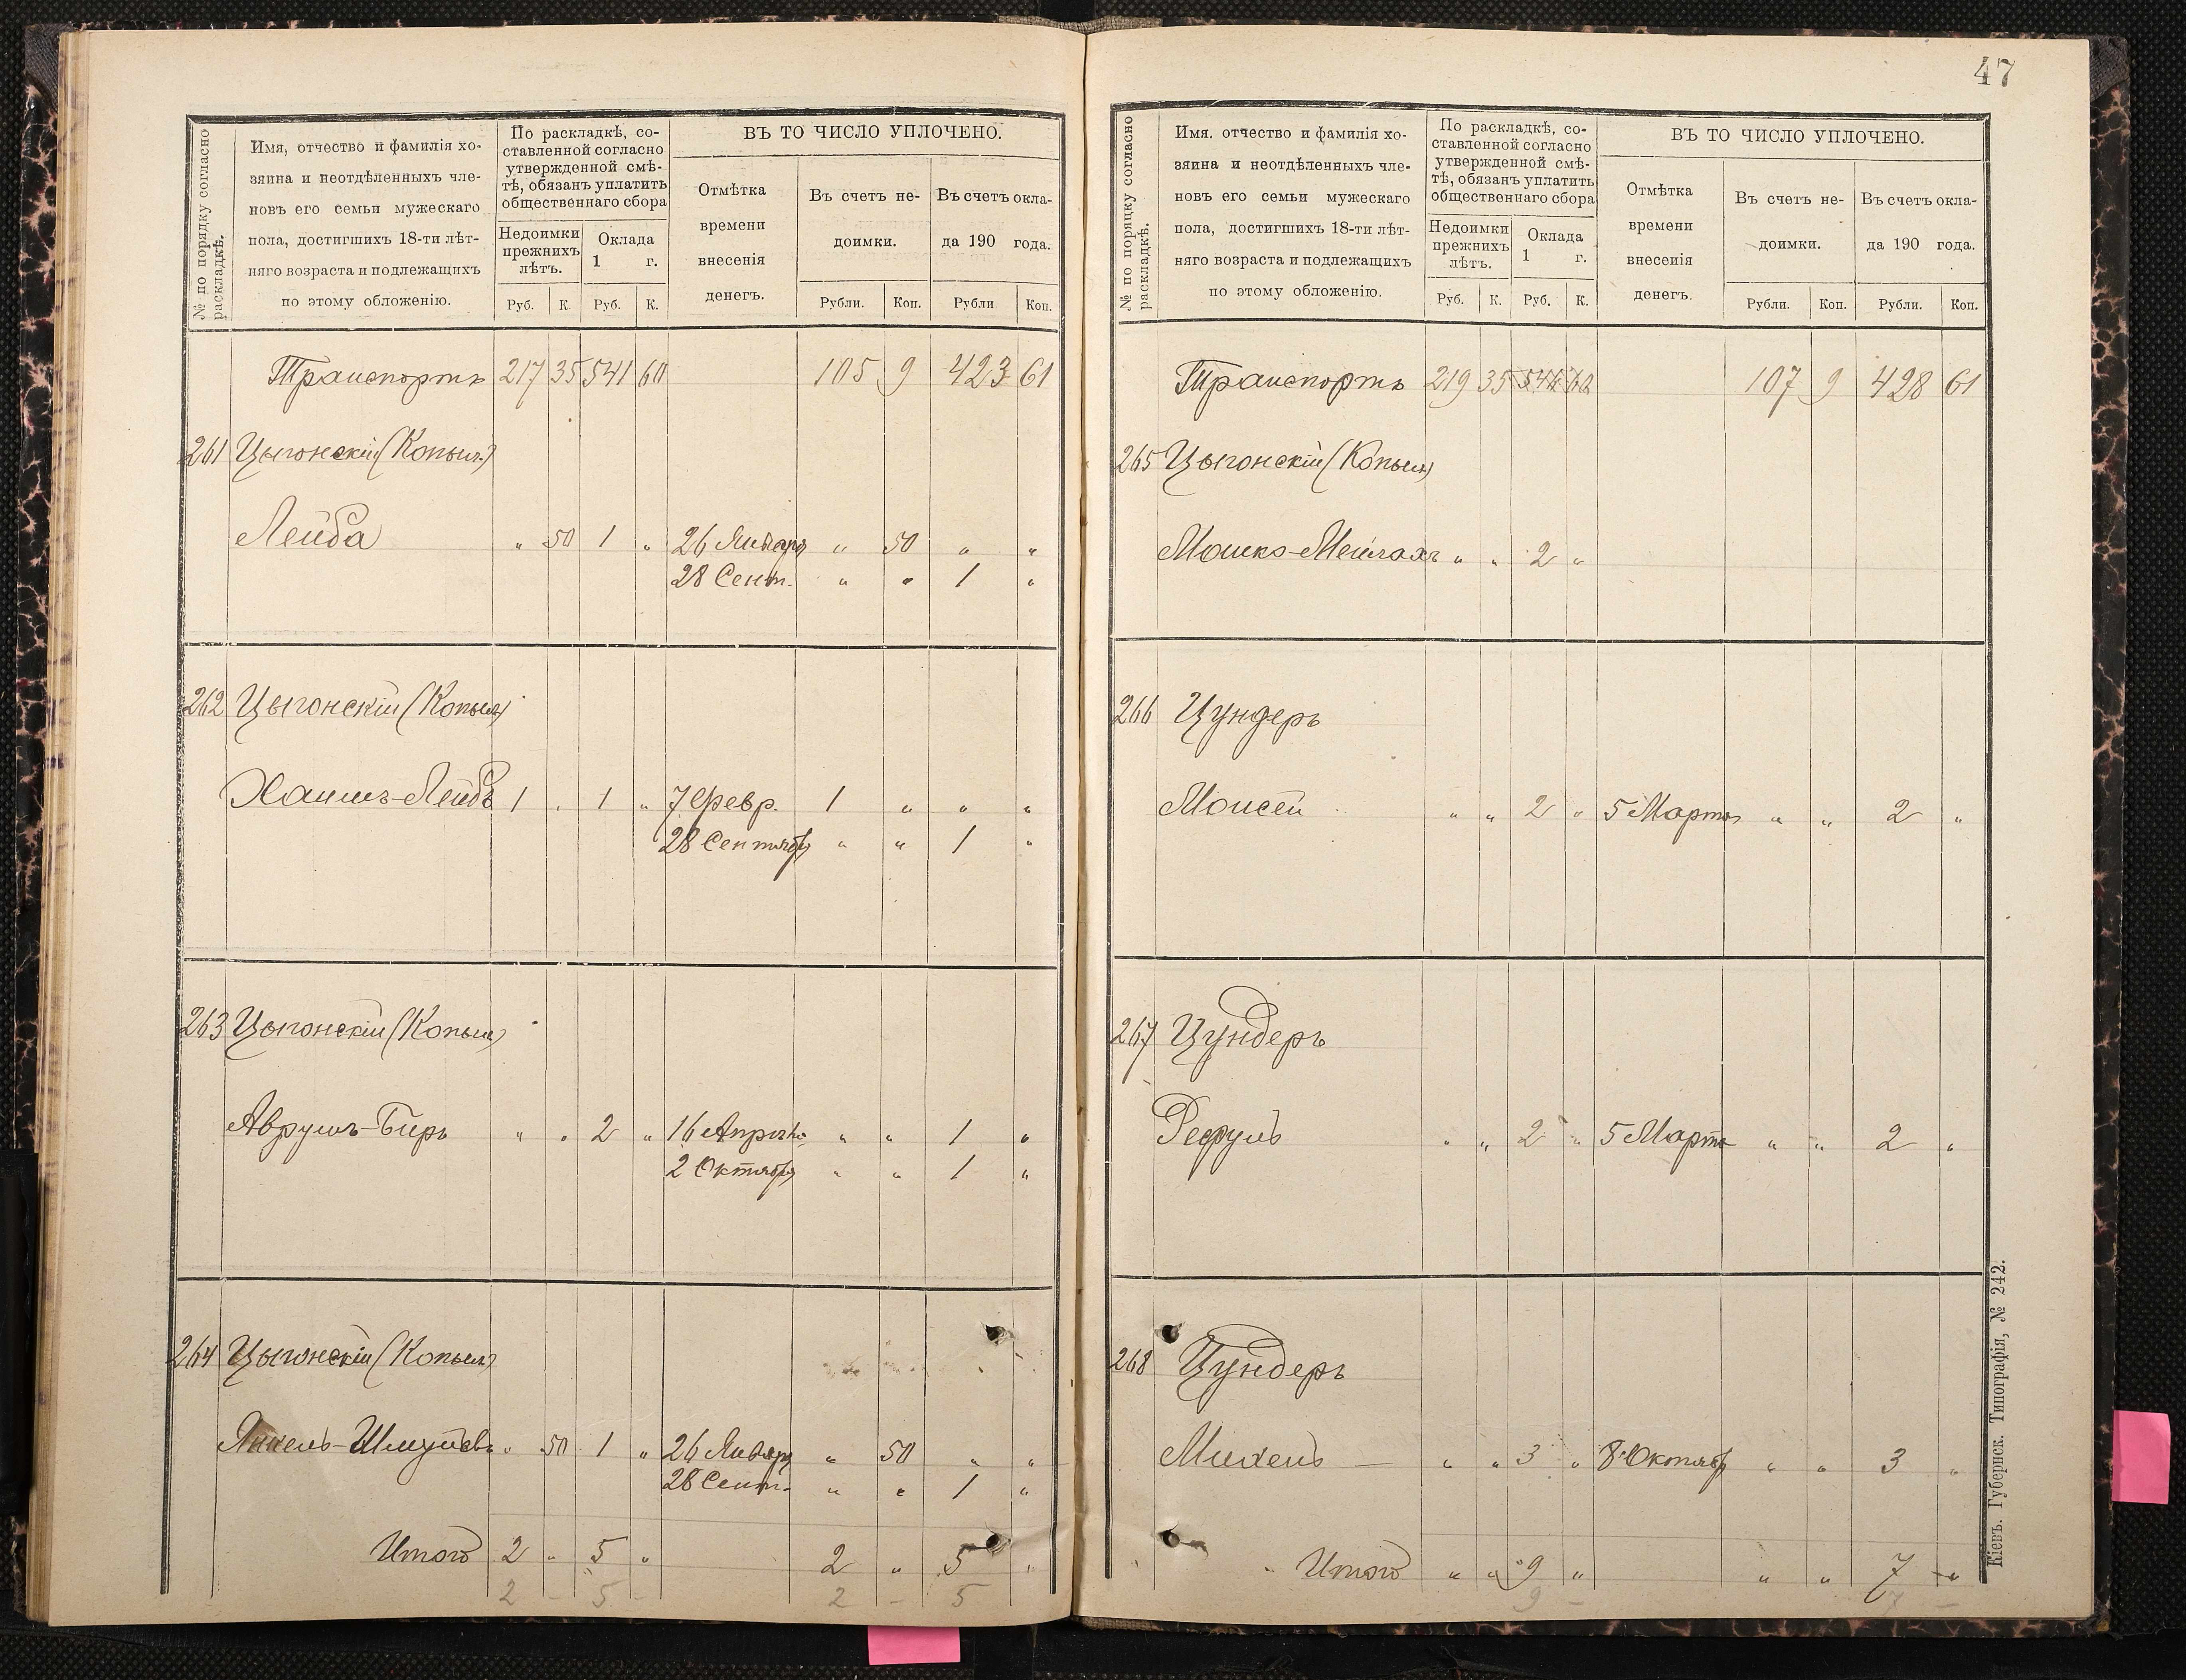 № по порядку согласно раскладкѣ.
Имя, отчество и фамилія хо-
зяина и неотдѣленныхъ чле-
новъ его семьи мужескаго
пола, достигшихъ 18-ти лѣт-
няго возраста и подлежащихъ
по этому обложенію.
По раскладкѣ, со-
ставленной согласно
утвержденной смѣ-
тѣ, обязанъ уплатить
общественнаго сбора
Недоимки
прежнихъ
лѣтъ.
Оклада
1 г.
Руб. К. Руб. К.
ВЪ ТО ЧИСЛО УПЛОЧЕНО.
Отмѣтка
времени
внесенія
денегъ.
Въ счетъ не-
доимки.
Въ счетъ окла-
да 190 года.
Рубли. Коп. Рубли Коп.
Транспортъ 217 35 541 60 105 9 423 61
261 Цыгонскій (Копыл)
Лейба „ 50 1 „ 26 Января „ 50 „ „
28 Сент. „ „ 1 „
262 Цыгонскій (Копыл)
Хаимъ-Лейбъ 1 „ 1 „ 7 Февр. 1 „ „ „
28 Сентября „ „ 1 „
263 Цыгонскій (Копыл)
Аврумъ-Беръ „ „ 2 „ 16 Апрѣля „ „ 1 „
2 Октября „ „ 1 „
264 Цыгонскій (Копыл)
Янкель-Шмуйлъ „ 50 1 „ 26 Января „ 50 „ „
28 Сент. „ „ 1 „
Итого 2 „ 5 „ 2 „ 5 „
2 - 5 - 2 - 5
47
№ по поряцку согласно раскладкѣ.
Имя. отчество и фамилія хо-
зяина и неотдѣленныхъ чле-
новъ его семьи мужескаго
пола, достигшихъ 18-ти лѣт-
няго возраста и подлежащихъ
по этому обложенію.
По раскладкѣ, со-
ставленной согласно
утвержденной смѣ-
тѣ, обязанъ уплатить
общественнаго сбора
Недоимки
прежнихъ
лѣтъ.
Оклада
1 г.
Руб. К. Руб. К.
ВЪ ТО ЧИСЛО УПЛОЧЕНО.
Отмѣтка
времени
внесенія
денегъ.
Въ счетъ не-
доимки.
Въ счетъ окла-
да 190 года.
Рубли. Коп. Рубли. Коп.
Транспортъ 219 35 546 60 107 9 428 61
265 Цыгонскій (Копыл)
Мошко-Мейлахъ „ „ 2 „
266 Цундеръ
Моисей „ „ 2 „ 5 Марта „ „ 2 „
267 Цундеръ
„ „ 2 „ 5 Марта „ „ 2 „
268 Цундеръ
Михель — „ „ 3 „ 8 Октября „ „ 3 „
Итого „ „ 9 „ „ „ 7 „
9 - 7 -
Кіевъ. Губернск. Типографія, № 242.